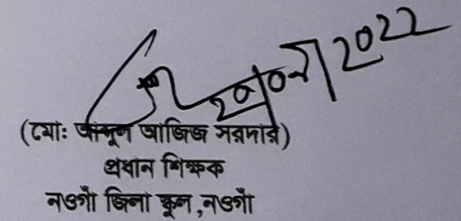 ২০/০২/2022
(মোঃ আব্দুল আজিজ সরদার)
প্রধান শিক্ষক
নওগাঁ জিলা স্কুল,নওগাঁ